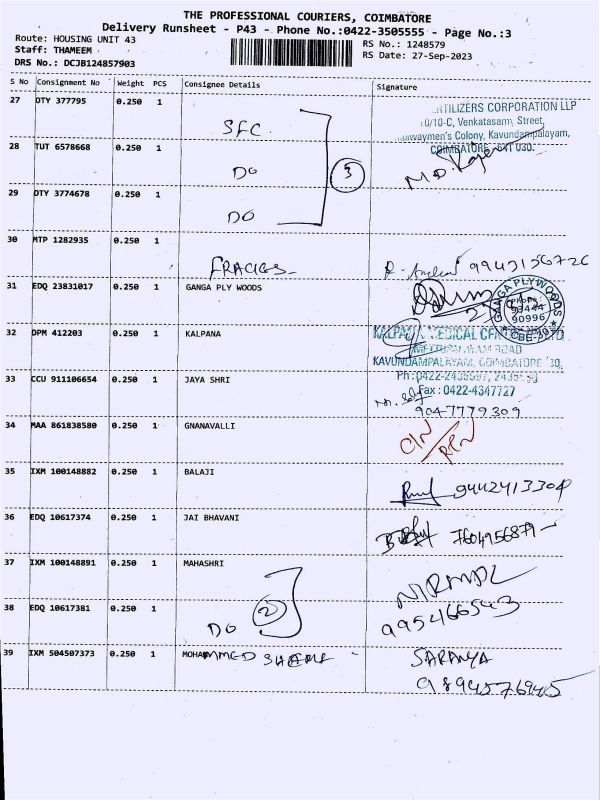 THE PROFESSIONAL COURIERS, COIMBATORE
Delivery Runsheet - P43 - Phone No.:0422-3505555 - Page No.:3
Route: HOUSING UNIT 43
Staff: THAMEEM
DRS No.: DCJB124857903
RS No.: 1248579
RS Date: 27-Sep-2023
S No Consignment No Weight PCS Consignee Details Signature
27 DTY 377795 0.250 1
SFC
RTILIZERS CORPORATION LLP
10/10-C, Venkatasamy Street,
waymen's Colony, Kavundampalayam,
COIMBATORE 641 030.
28 TUT 6578668 0.250 1
DO
3
29 DTY 3774678 0.250 1
DO
30 MTP 1282935 0.250 1
31 EDQ 23831017 0.250 1 GANGA PLY WOODS
GANGA PLYWOODS
Phone:
93444
90996
CBE-30
32 DPM 412203 0.250 1 KALPANA
KALPANA MEDICAL CENTRE
METTUPALAYAM ROAD
KAVUNDAMPALAYAM, COIMBATORE 30,
33 CCU 911106654 0.250 1 JAYA SHRI
Fax : 0422-4347727
9047779309
34 MAA 861838580 0.250 1 GNANAVALLI
35 IXM 100148882 0.250 1 BALAJI
9442413304
36 EDQ 10617374 0.250 1 JAI BHAVANI
7604956879
37 IXM 100148891 0.250 1 MAHASHRI
NIRMAL
2
38 EDQ 10617381 0.250 1
DO
9954166543
39 IXM 504507373 0.250 1 MOHAMMED
SARANYA